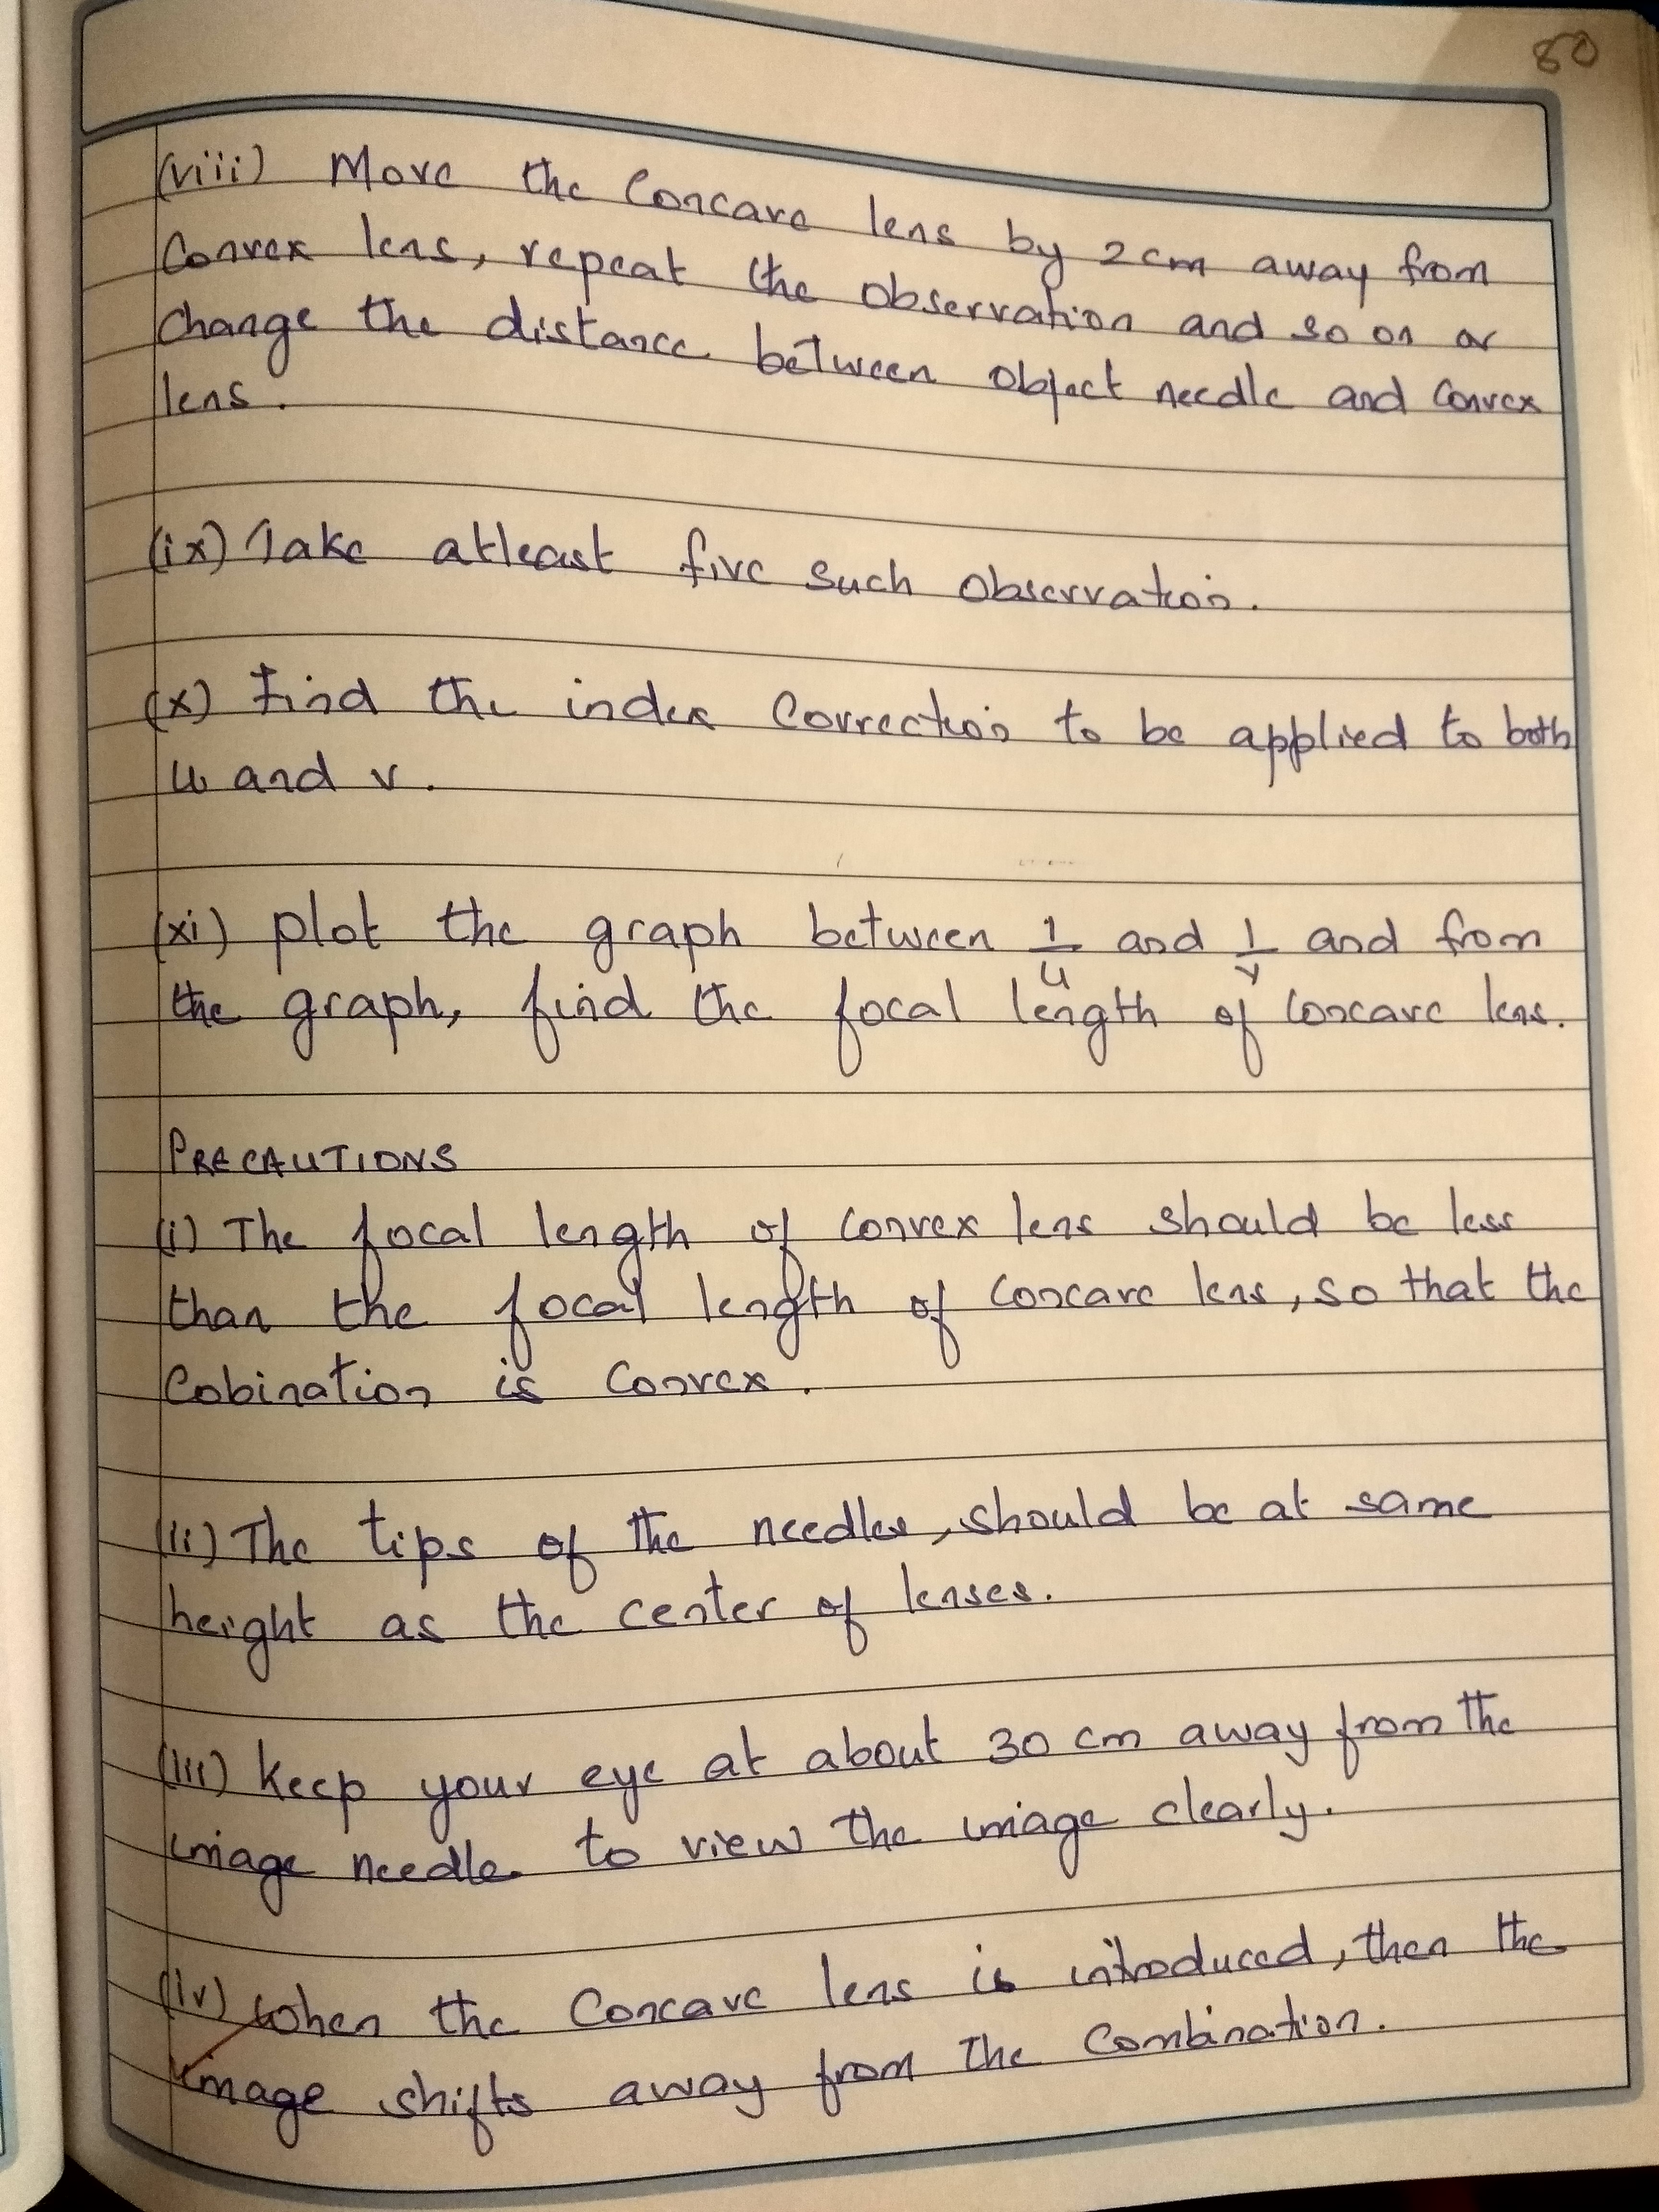 80
(viii) Move the Concave lens by 2cm away from
Convex lens, repeat the observation and so on or
change the distance between object needle and Convex
lens.
(ix) Take atleast five such observation.
(x) Find the index Correction to be applied to both
u and v.
(xi) plot the graph between 1/u and 1/v and from
the graph, find the focal length of concave lens.
PRECAUTIONS
(i) The focal length of convex lens should be less
than the focal length of concave lens, so that the
Cobination is Convex.
(ii) The tips of the needles, should be at same
height as the center of lenses.
(iii) Keep your eye at about 30 cm away from the
image needle to view the image clearly.
(iv) When the Concave lens is introduced, then the
image shifts away from the combination.